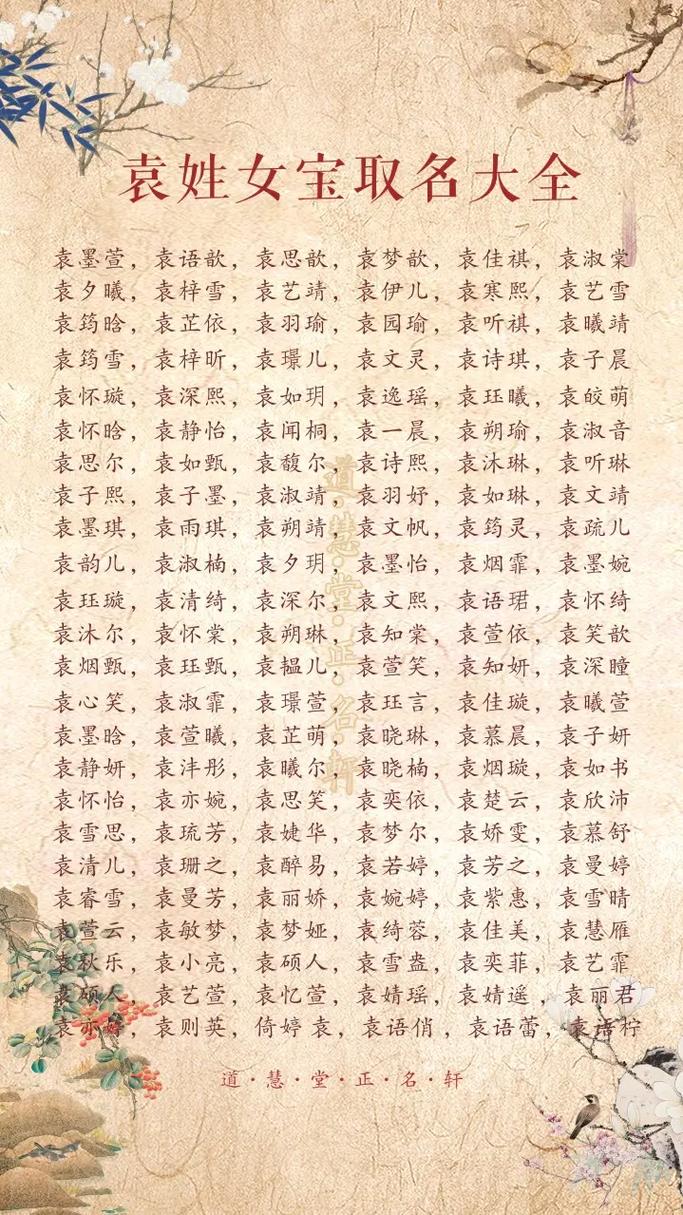 袁姓女宝取名大全
袁墨萱，袁语歆，袁思歆，袁梦歆，袁佳祺，袁淑棠
袁夕曦，袁梓雪，袁艺靖，袁伊儿，袁寒熙，袁艺雪
袁筠晗，袁芷依，袁羽瑜，袁园瑜，袁听祺，袁曦靖
袁筠雪，袁梓昕，袁璟儿，袁文灵，袁诗琪，袁子晨
袁怀璇，袁深熙，袁如玥，袁逸瑶，袁珏曦，袁皎萌
袁怀晗，袁静怡，袁闻桐，袁一晨，袁朔瑜，袁淑音
袁思尔，袁如甄，袁馥尔，袁诗熙，袁沐琳，袁听琳
袁子熙，袁子墨，袁淑靖，袁羽妤，袁如琳，袁文靖
袁墨琪，袁雨琪，袁朔靖，袁文帆，袁筠灵，袁疏儿
袁韵儿，袁淑楠，袁夕玥，袁墨怡，袁烟霏，袁墨婉
袁珏璇，袁清绮，袁深尔，袁文熙，袁语珺，袁怀绮
袁沐尔，袁怀棠，袁朔琳，袁知棠，袁萱依，袁笑歆
袁烟甄，袁珏甄，袁韫儿，袁萱笑，袁知妍，袁深瞳
袁心笑，袁淑霏，袁璟萱，袁珏言，袁佳璇，袁曦萱
袁墨晗，袁萱曦，袁芷萌，袁晓琳，袁慕晨，袁子妍
袁静妍，袁沣彤，袁曦尔，袁晓楠，袁烟璇，袁如书
袁怀怡，袁亦婉，袁思笑，袁奕依，袁楚云，袁欣沛
袁雪思，袁琉芳，袁婕华，袁梦尔，袁娇雯，袁慕舒
袁清儿，袁珊之，袁醉易，袁若婷，袁芳之，袁曼婷
袁睿雪，袁曼芳，袁丽娇，袁婉婷，袁紫惠，袁雪晴
袁萱云，袁敏梦，袁梦娅，袁绮蓉，袁佳美，袁慧雁
袁秋乐，袁小亮，袁硕人，袁雪盎，袁奕菲，袁艺霏
袁硕人，袁艺萱，袁忆萱，袁婧瑶，袁婧遥，袁丽君
袁亦婷，袁则英，倚婷 袁，袁语俏，袁语蕾，袁语柠
道·慧·堂·正·名·轩
道·慧·堂·正·名·轩